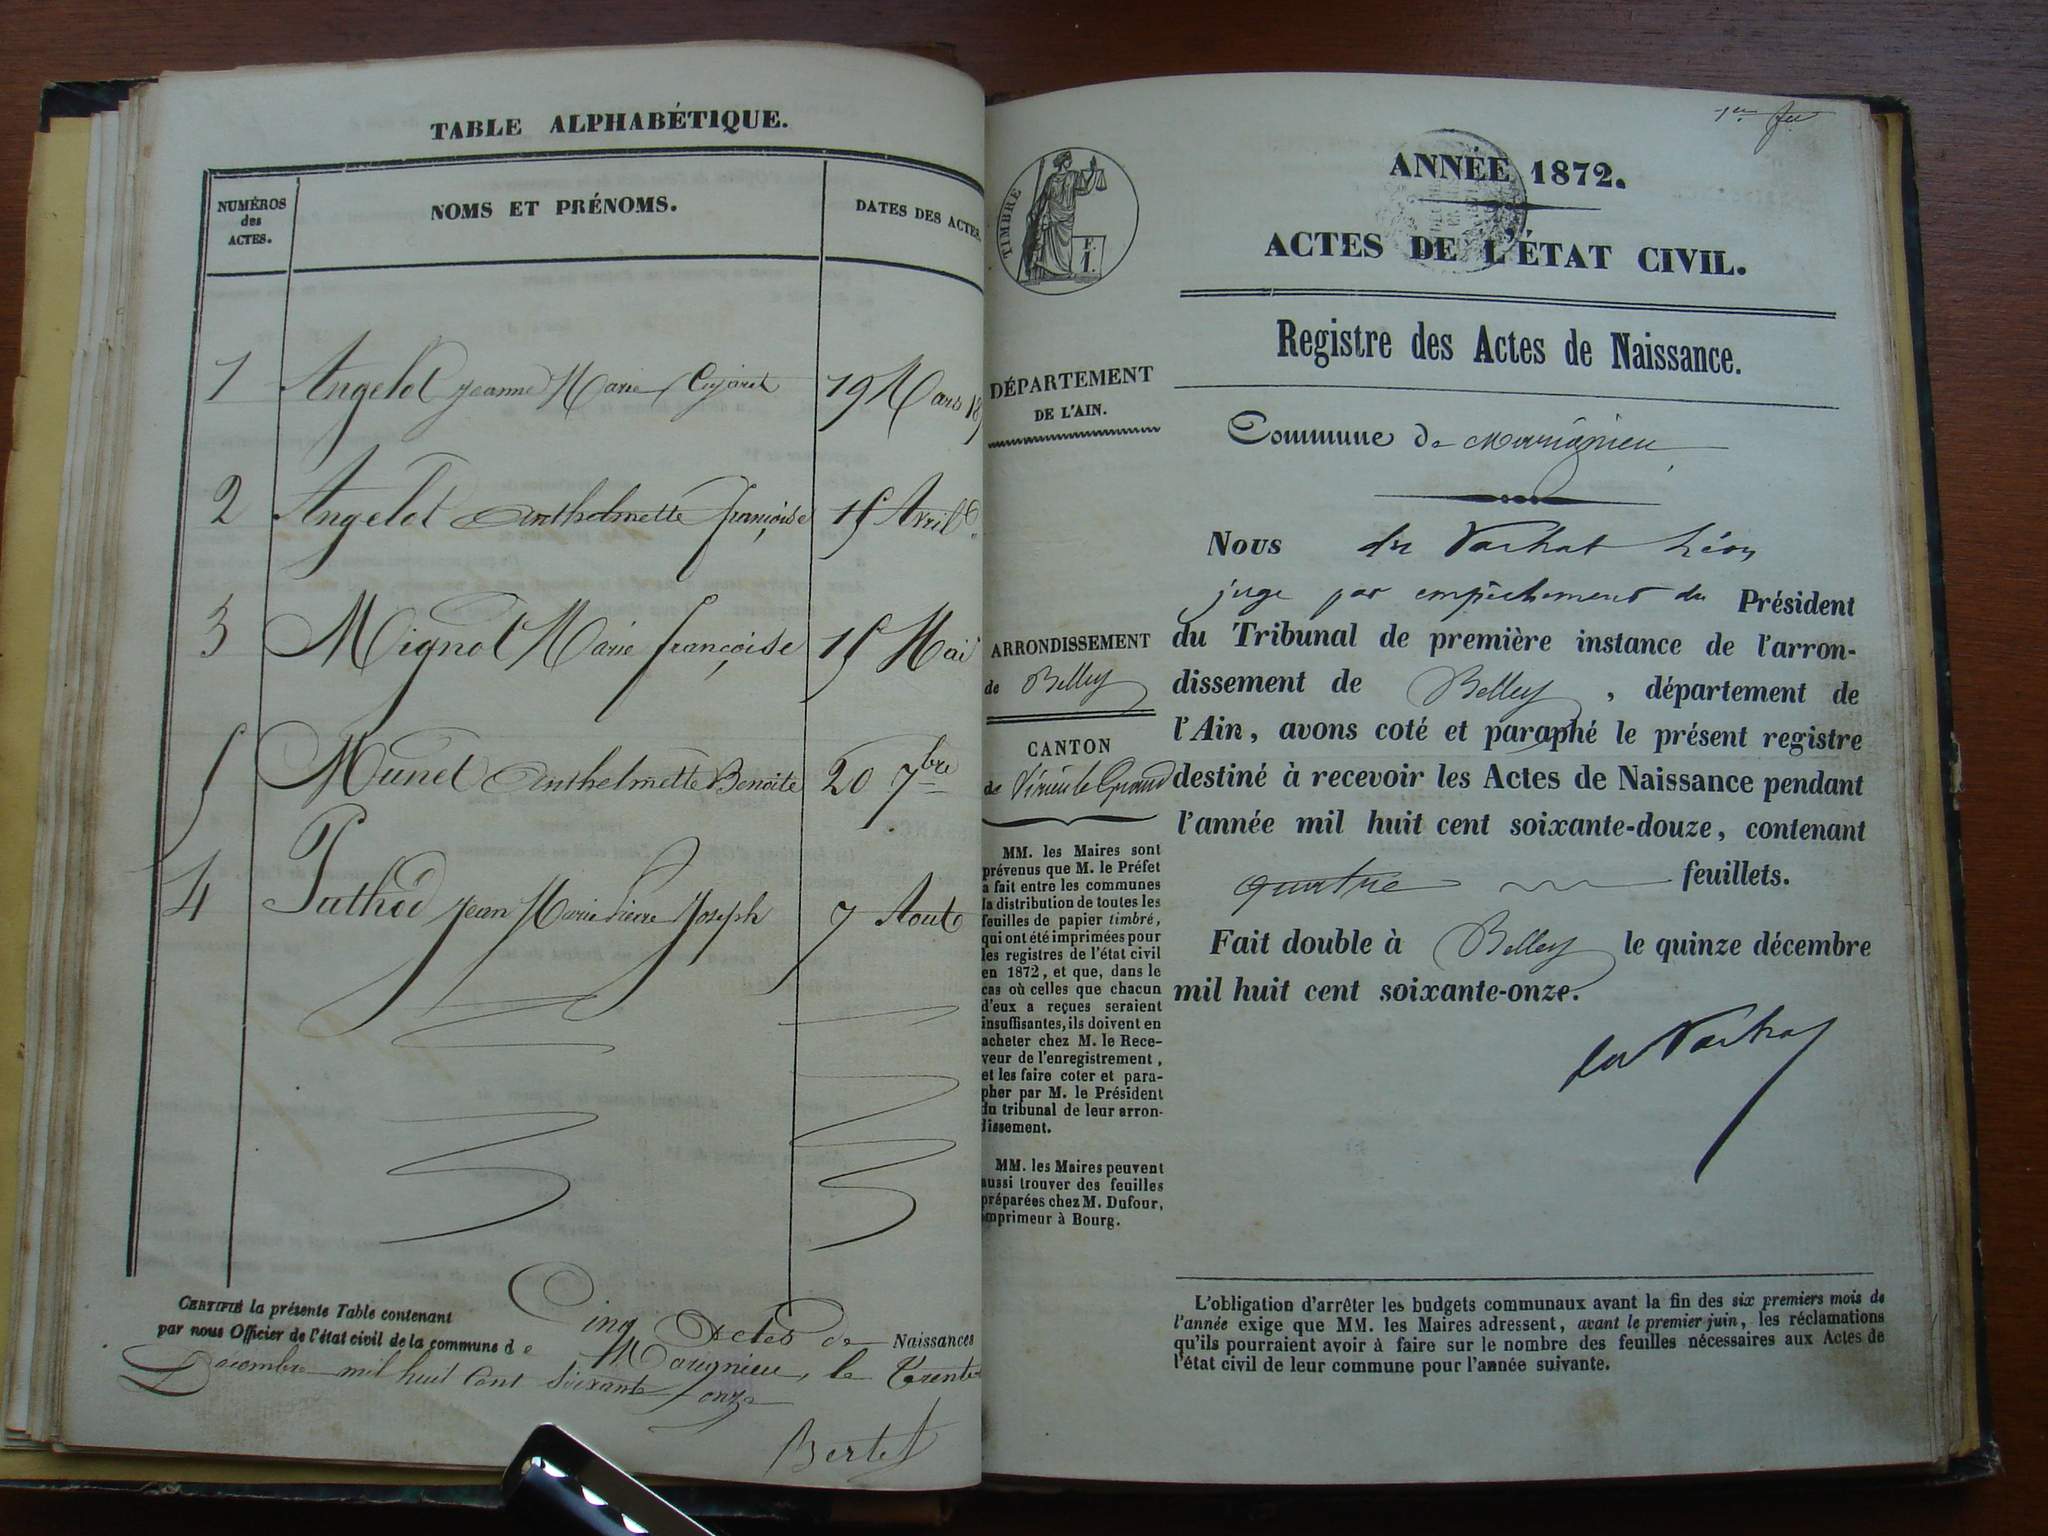 TABLE ALPHABÉTIQUE.
NUMÉROS des ACTES.
NOMS ET PRÉNOMS.
DATES DES ACTES.
1 Angelot Jeanne Marie 19 Mars 18
2 Angelot Anthelmette françoise 15 Avril
3 Mignot Marie françoise 15 Mai
5 Munet Anthelmette Benoite 20 7bre
4 Pathod Jean Marie Pierre Joseph 7 Aout
CERTIFIÉ la présente Table contenant Cinq Actes de Naissances
par nous Officier de l'état civil de la commune de Marignieu, le Trente
Décembre mil huit Cent Soixante onze
Bertet
1er
TIMBRE
F.
I.
ANNÉE 1872.
ACTES DE L'ÉTAT CIVIL.
Registre des Actes de Naissance.
DÉPARTEMENT
DE L'AIN.
Commune de Marignieu
ARRONDISSEMENT
de Belley
CANTON
de Virieu le Grand
MM. les Maires sont
prévenus que M. le Préfet
a fait entre les communes
la distribution de toutes les
feuilles de papier timbré,
qui ont été imprimées pour
les registres de l'état civil
en 1872, et que, dans le
cas où celles que chacun
d'eux a reçues seraient
insuffisantes, ils doivent en
acheter chez M. le Rece-
veur de l'enregistrement,
et les faire coter et para-
pher par M. le Président
du tribunal de leur arron-
dissement.
MM. les Maires peuvent
aussi trouver des feuilles
préparées chez M. Dufour,
imprimeur à Bourg.
Nous du Vachat Léon
juge par empêchement du Président
du Tribunal de première instance de l'arron-
dissement de Belley, département de
l'Ain, avons coté et paraphé le présent registre
destiné à recevoir les Actes de Naissance pendant
l'année mil huit cent soixante-douze, contenant
quatre feuillets.
Fait double à Belley le quinze décembre
mil huit cent soixante-onze.
du Vachat
L'obligation d'arrêter les budgets communaux avant la fin des six premiers mois de
l'année exige que MM. les Maires adressent, avant le premier juin, les réclamations
qu'ils pourraient avoir à faire sur le nombre des feuilles nécessaires aux Actes de
l'état civil de leur commune pour l'année suivante.